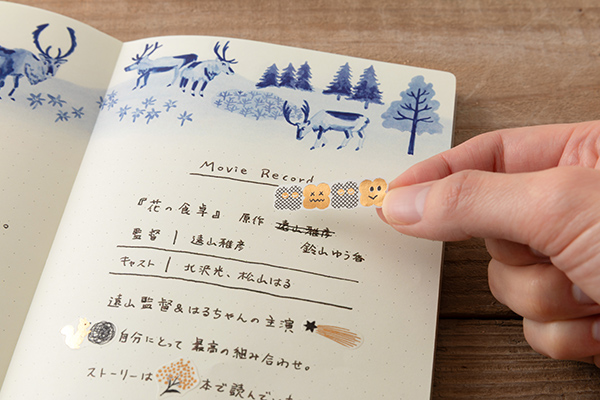 Movie Record
『花の食卓』 原作 遠山雅彦
鈴山ゆう香
監督 | 遠山雅彦
キャスト | 北沢光、松山はる
遠山監督&はるちゃんの主演
自分にとって最高の組み合わせ。
ストーリーは 本で読んでい